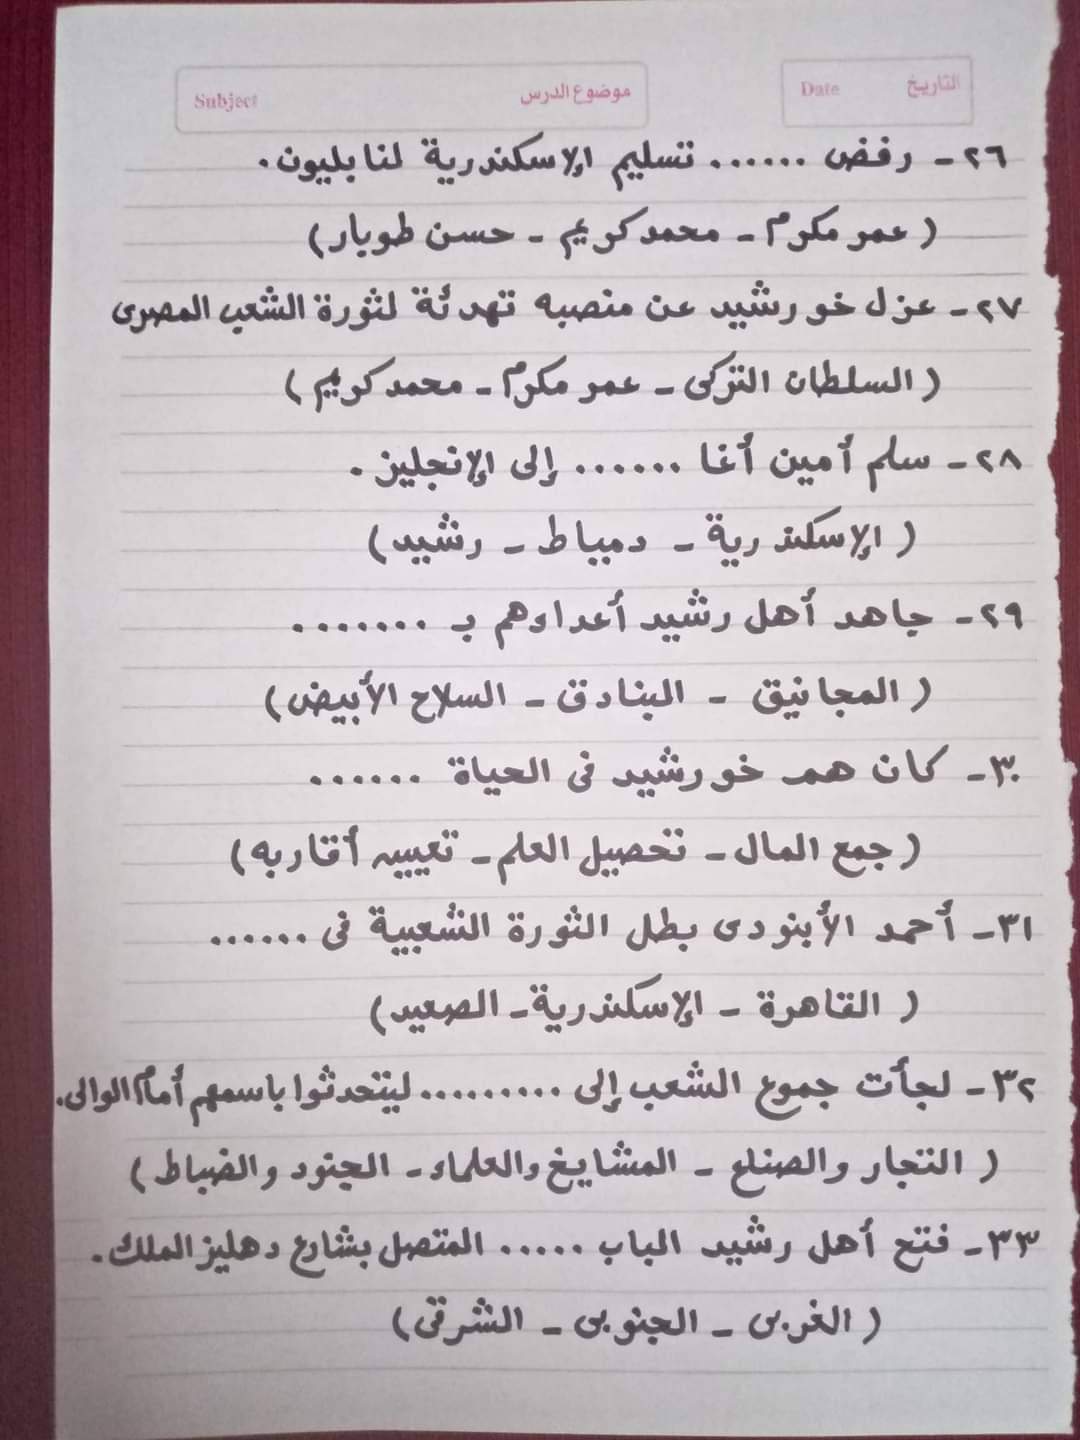 موضوع الدرس Subject
التاريخ Date
٢٦- رفض ...... تسليم الإسكندرية لنابليون.
( عمر مكرم - محمد كريم - حسن طوبار)
٢٧- عزل خورشيد عن منصبه تهدئة لثورة الشعب المصرى
( السلطان التركى - عمر مكرم - محمد كريم )
٢٨- سلم أمين أغا ...... إلى الإنجليز.
( الإسكندرية - دمياط - رشيد)
٢٩- جاهد أهل رشيد أعداءهم بـ .......
( المجانيق - البنادق - السلاح الأبيض)
٣٠- كان هم خورشيد فى الحياة ......
( جمع المال - تحصيل العلم - تعيين أقاربه)
٣١- أحمد الأبنودى بطل الثورة الشعبية فى ......
( القاهرة - الإسكندرية - الصعيد)
٣٢- لجأت جموع الشعب إلى ......... ليتحدثوا باسمهم أمام الوالى.
( التجار والصناع - المشايخ والعلماء - الجنود والضباط )
٣٣- فتح أهل رشيد الباب ..... المتصل بشارع دهليز الملك.
( الغربى - الجنوبى - الشرقى)